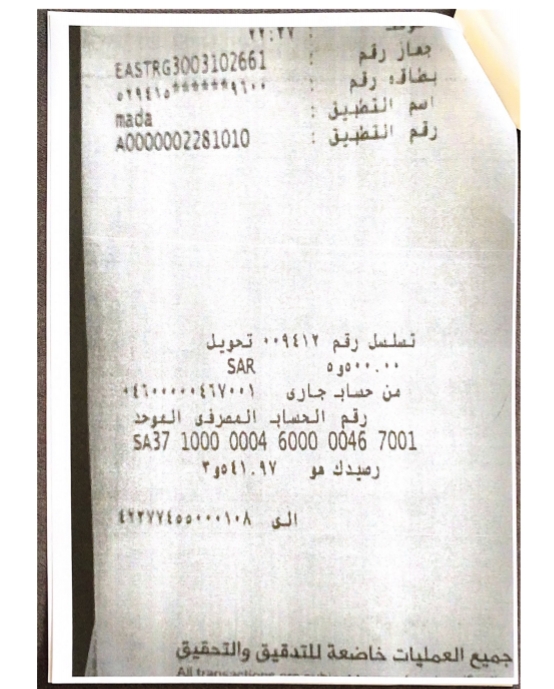 : ٢٢:٢٧
جهاز رقم : EASTRG3003102661
بطاقه رقم : ٥٢٩٤١٥******٩٦٠٠
اسم التطبيق : mada
رقم التطبيق : A0000002281010
تسلسل رقم ٠٠٩٤١٢ تحويل
٥و٥٠٠.٠٠ SAR
من حساب جارى ٠٤٦٠٠٠٠٠٤٦٧٠٠١
رقم الحساب المصرفى الموحد
SA37 1000 0004 6000 0046 7001
رصيدك هو ٣و٥٤١.٩٧
الى ٤٢٢٧٧٤٥٥٠٠٠١٠٨
جميع العمليات خاضعة للتدقيق والتحقيق
All transactions are